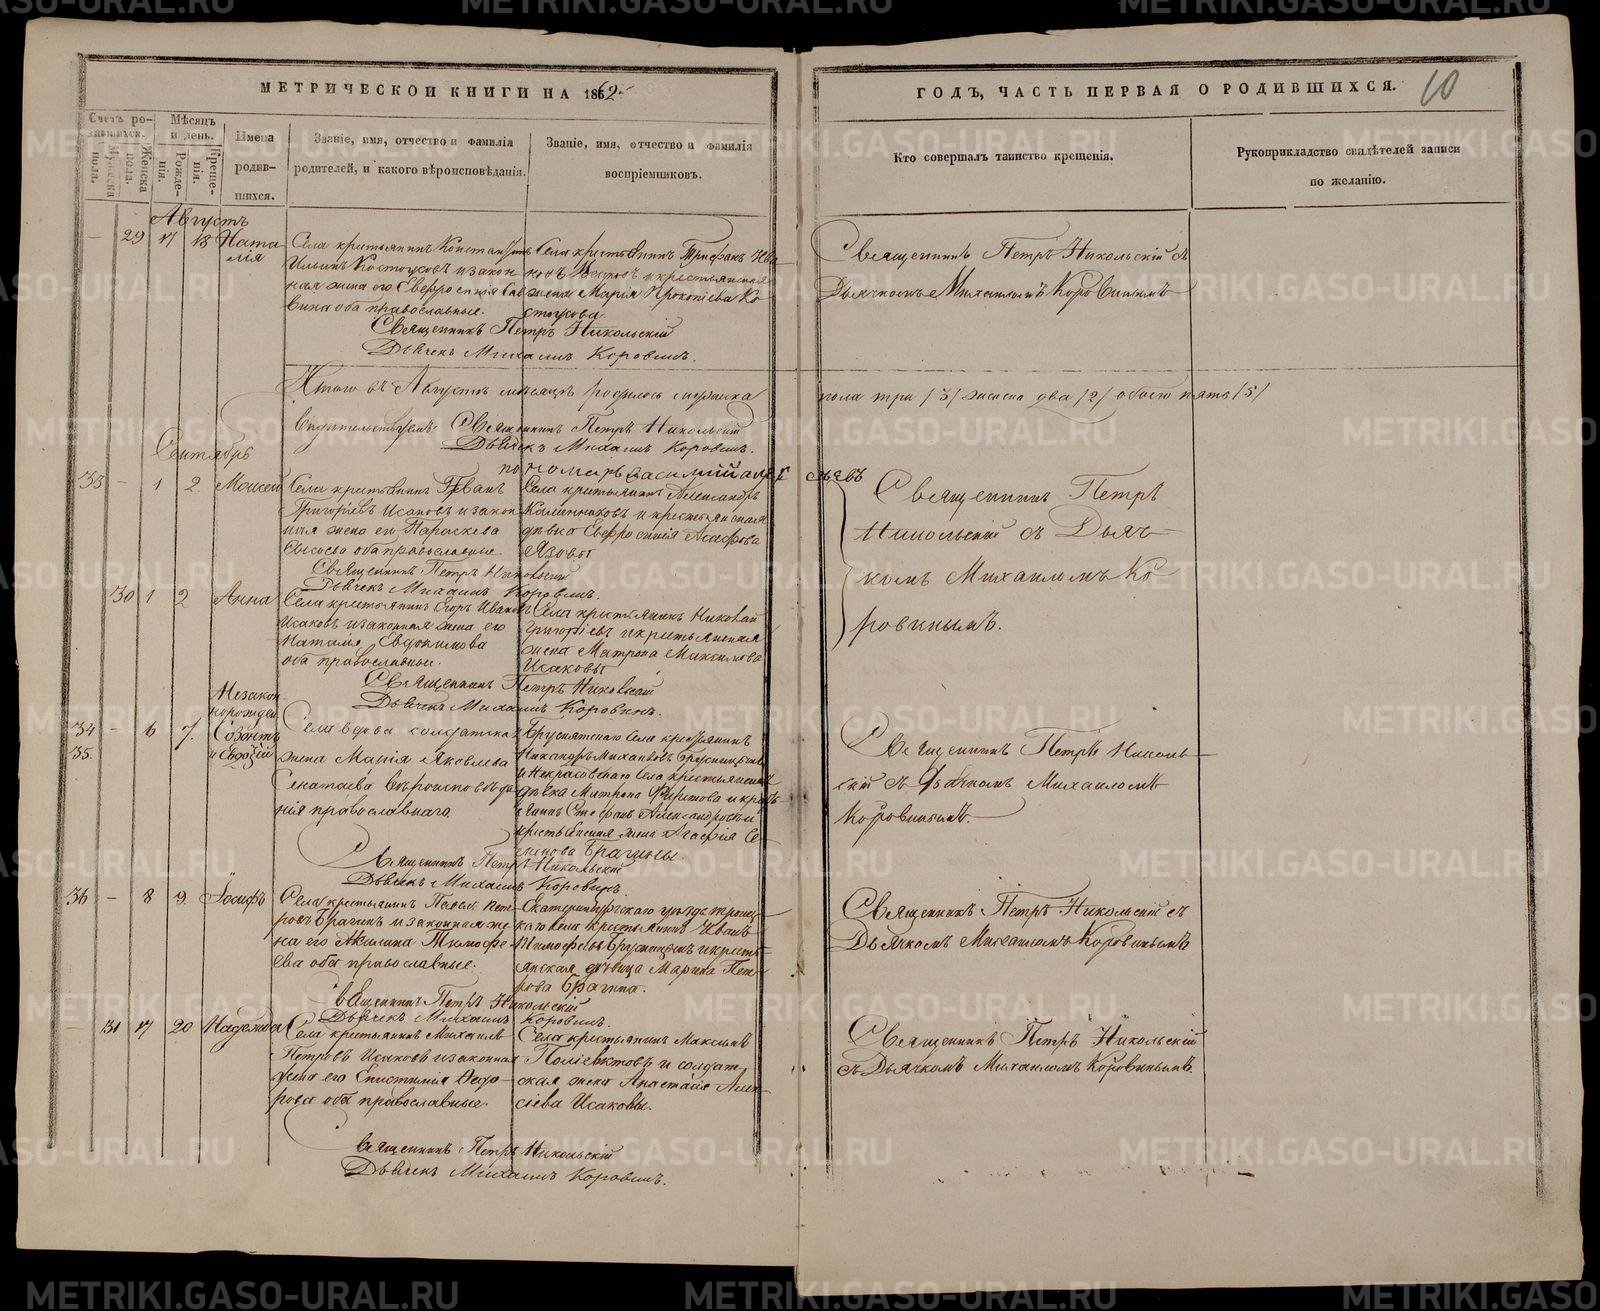 МЕТРИЧЕСКОЙ КНИГИ НА 1862
Счетъ родившихся.
Мужеска пола.
Женска пола.
Мѣсяцъ и день.
Рожденія.
Крещенія.
Имена родившихся.
Званіе, имя, отчество и фамилія родителей, и какого вѣроисповѣданія.
Званіе, имя, отчество и фамилія воспріемниковъ.
Августъ
29 17 18 Наталія
Села крестьянинъ Константинъ
Ильинъ Костоусовъ и законная
жена его Евфросинія
оба православные.
Села крестьянинъ Трифанъ
и крестьянская
жена Марія Прокопіева Костоусова
Священникъ Петръ Никольскій
Дьячекъ Михаилъ Коровинъ.
Итого въ Августѣ мѣсяцѣ родилось мужеска
Священникъ Петръ Никольскій
Дьячекъ Михаилъ Коровинъ.
пономарь Василій
Сентябрь
33 – 1 2 Моисей
Села крестьянинъ
Григорьевъ Исаковъ и законная
жена его Параскева
оба православные
Села крестьянинъ Александръ
Калинниковъ и крестьянская
дѣвка Евфросинія
Язовы
Священникъ Петръ Никольскій
Дьячекъ Михаилъ Коровинъ.
30 1 2 Анна
Села крестьянинъ Егоръ Ивановъ
Исаковъ и законная жена его
Наталія Евдокимова
оба православные.
Села крестьянинъ Николай
Григорьевъ и крестьянская
жена Матрона Максимова
Исаковы
Священникъ Петръ Никольскій
Дьячекъ Михаилъ Коровинъ.
Незаконнорожден
34 – 6 7.
35.
Села вдова солдатская
жена Марія Яковлева
вѣроисповѣданія православнаго
Села крестьянинъ
Никандръ Михайловъ
и Некрасовскаго села крестьянская
дѣвка Матрона
Стефанъ Александровъ и
крестьянская жена Агафія
Брагины.
Священникъ Петръ Никольскій
Дьячекъ Михаилъ Коровинъ.
36 – 8 9. Іосифъ
Села крестьянинъ Павелъ Петровъ
Брагинъ и законная жена
его Акилина Тимофеева
оба православные.
Екатеринбургскаго уѣзда
села крестьянинъ Иванъ
Тимофеевъ
и крестьянская дѣвица Марина Петрова
Брагина.
Священникъ Петръ Никольскій
Дьячекъ Михаилъ Коровинъ.
31 17 20 Надежда
Села крестьянинъ Михаилъ
Петровъ Исаковъ и законная
жена его Епистимія Федорова
оба православные.
Села крестьянинъ Максимъ
Поліевктовъ и солдатская
жена Анастасія
Исаковы.
Священникъ Петръ Никольскій
Дьячекъ Михаилъ Коровинъ.
ГОДЪ, ЧАСТЬ ПЕРВАЯ О РОДИВШИХСЯ.
10
Кто совершалъ таинство крещенія.
Рукоприкладство свидѣтелей записи
по желанію.
Священникъ Петръ Никольскій съ
Дьячкомъ Михаиломъ Коровинымъ
пола три /3/ женска два /2/ обоего пять /5/
Священникъ Петръ
Никольскій съ Дьячкомъ
Михаиломъ Коровинымъ.
Священникъ Петръ Никольскій
съ Дьячкомъ Михаиломъ
Коровинымъ.
Священникъ Петръ Никольскій съ
Дьячкомъ Михаиломъ Коровинымъ
Священникъ Петръ Никольскій
съ Дьячкомъ Михаиломъ Коровинымъ.
METRIKI.GASO-URAL.RU